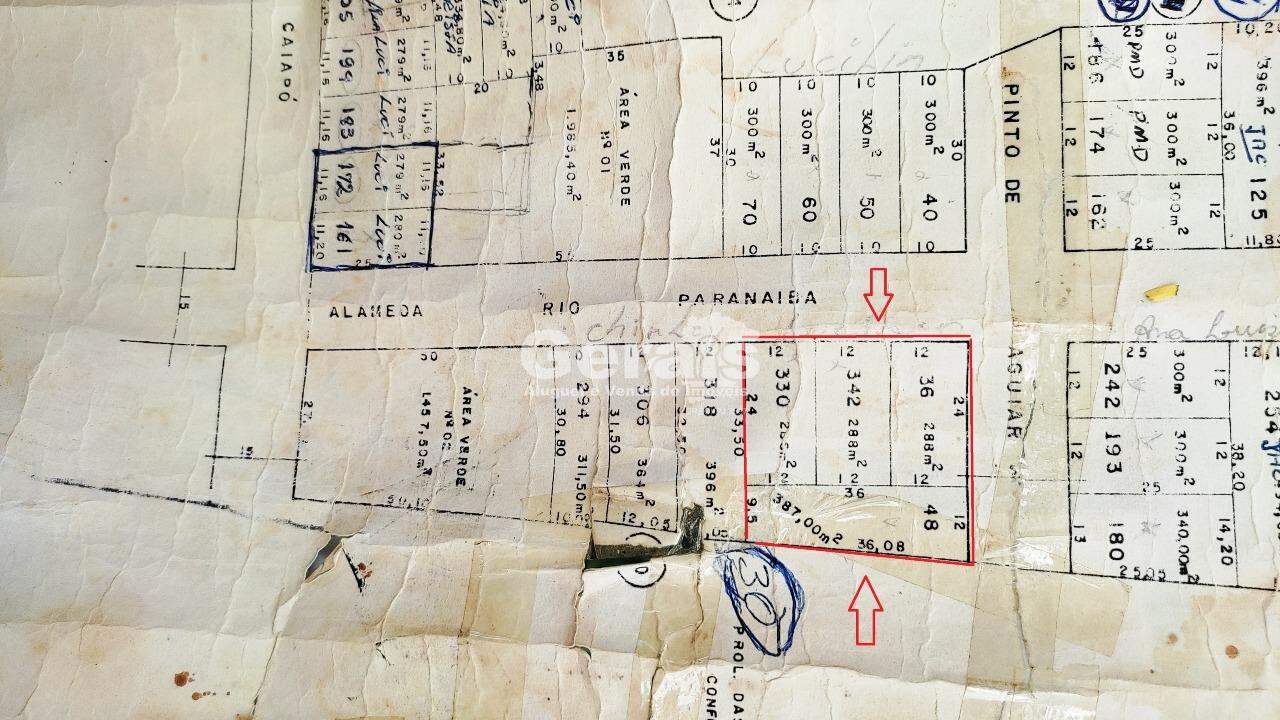 CAIAPÓ
199
183
172
161
11,16
11,16
11,20
279m²
279m²
279m²
280m²
Luci
Luci
Luci
11,16
11,16
11,16
33,52
25
20
10
3,48
35
ÁREA VERDE
Nº 01
1.963,40m²
37
30
10
300m²
70
10
10
300m²
60
10
10
300m²
50
10
10
300m²
40
10
30
Lucilin
PINTO DE
AGUIAR
25
12
486
PMD
300m²
12
12
174
PMD
300m²
12
12
162
300m²
12
25
10,20
396m²
36,00
JAC
125
11,80
ALAMEDA RIO PARANAIBA
15
15
30
ÁREA VERDE
Nº 02
1.457,50m²
27,
294
30,80
31,50m²
10
306
31,50
364m²
12,05
12
318
396m²
33,50
,05
Gerais
Aluguel e Venda de Imóveis
12
24
330
12
342
288m²
12
12
36
288m²
12
24
36
9,5
387,00m²
36,08
48
12
30
PROL. DAS
CONF
Ana Luiza
25
12
242
300m²
12
12
193
300m²
25
38,20
13
180
340,00m²
14,20
25,05
12,1
254